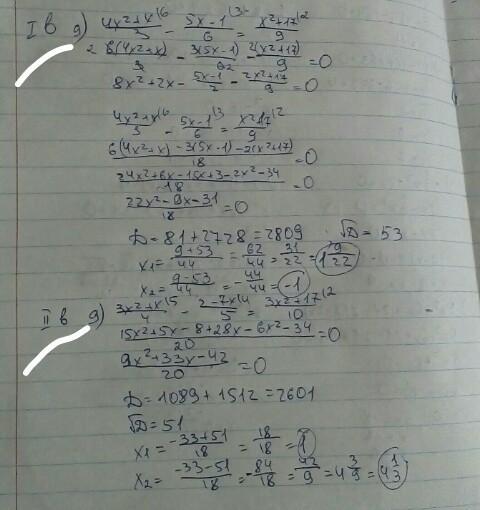 I в 9) (4x²+x)/3 \6 - (5x-1)/6 \3 = (x²+17)/9 \2
2 6(4x²+x)/3 - 3(5x-1)/62 - 2(x²+17)/9 = 0
8x²+2x - (5x-1)/2 - (2x²+17)/9 = 0
(4x²+x)/3 \6 - (5x-1)/6 \3 = (x²+17)/9 \2
(6(4x²+x) - 3(5x-1) - 2(x²+17))/18 = 0
(24x²+6x-15x+3-2x²-34)/18 = 0
(22x²-9x-31)/18 = 0
D = 81+2728 = 2809 √D = 53
x1 = (9+53)/44 = 62/44 = 31/22 = 1 9/22
x2 = (9-53)/44 = -44/44 = -1
II в 9) (3x²+x)/4 \5 - (2-7x)/5 \4 = (3x²+17)/10 \2
(15x²+5x-8+28x-6x²-34)/20 = 0
(9x²+33x-42)/20 = 0
D = 1089+1512 = 2601
√D = 51
x1 = (-33+51)/18 = 18/18 = 1
x2 = (-33-51)/18 = -84/18 = 42/9 = 4 3/9 = 4 1/3